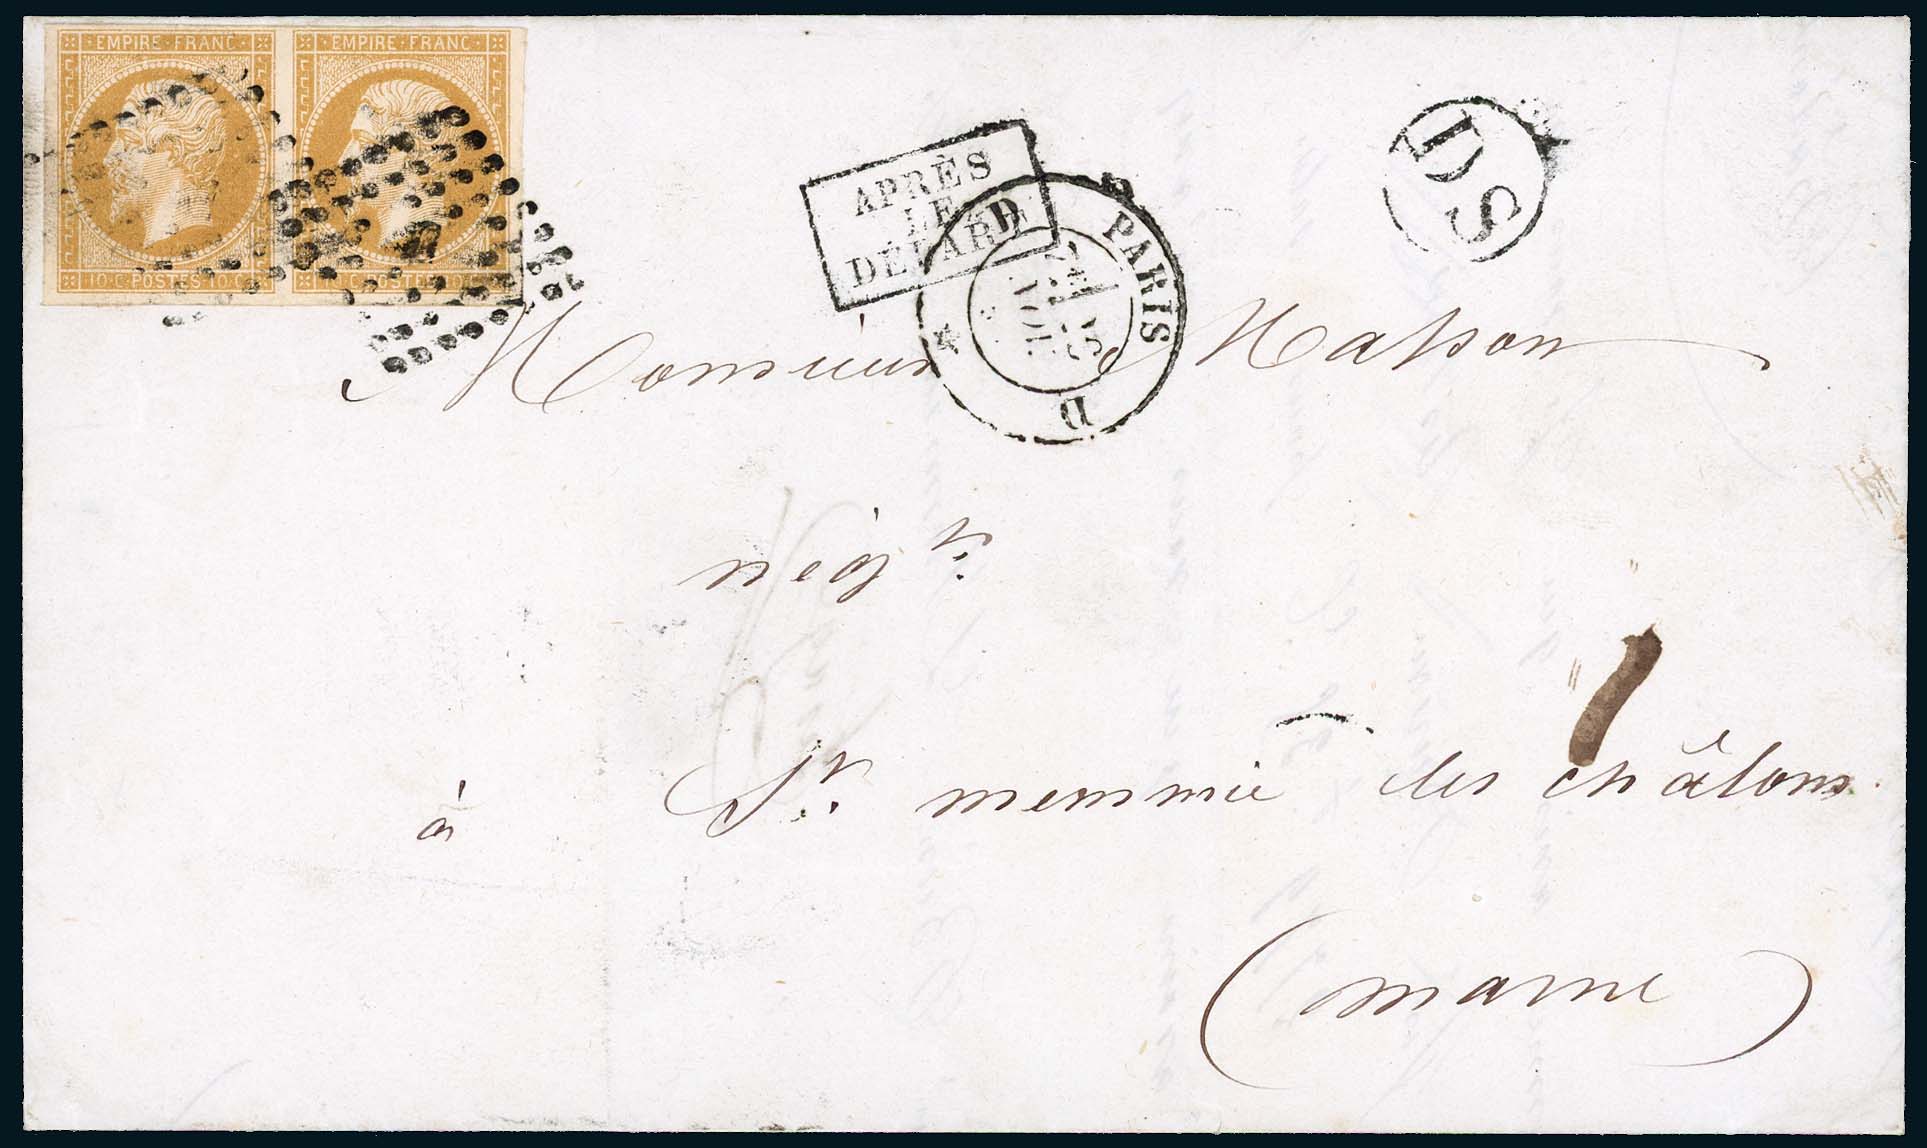 EMPIRE FRANC EMPIRE FRANC
10·C·POSTES·10·C
APRÈS
LE
DÉPARD
D PARIS
NOV
D
DS
Monsieur Masson
négt.
à St. memmie les châlons
(marne)